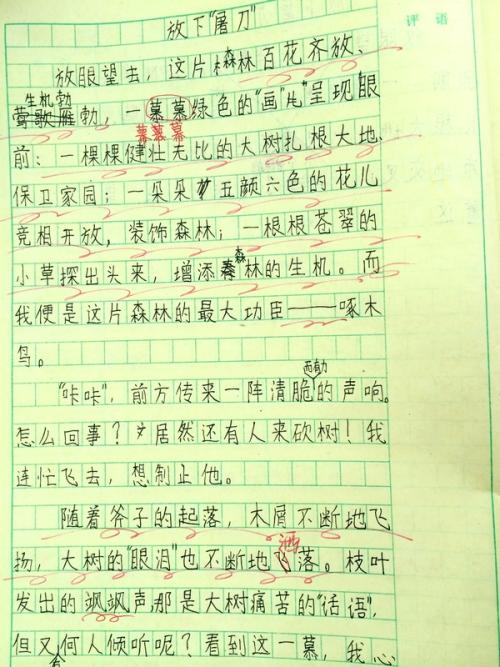 评语
放下"屠刀"
放眼望去,这片森林百花齐放、
生机勃
勃,一慕慕绿色的"画"片"呈现眼
幕幕幕
前:一棵棵健壮无比的大树扎根大地、
保卫家园;一朵朵五颜六色的花儿
竞相开放,装饰森林;一根根苍翠的
森
小草探出头来,增添林的生机。而
我便是这片森林的最大功臣——啄木
鸟。
而有力
"咔咔",前方传来一阵清脆的声响。
怎么回事?居然还有人来砍树!我
连忙飞去,想制止他。
随着斧子的起落,木屑不断地飞
洒
扬,大树的"眼泪"也不断地飞落。枝叶
发出的飒飒声,那是大树痛苦的"话语",
但又何人倾听呢?看到这一慕,我心
有